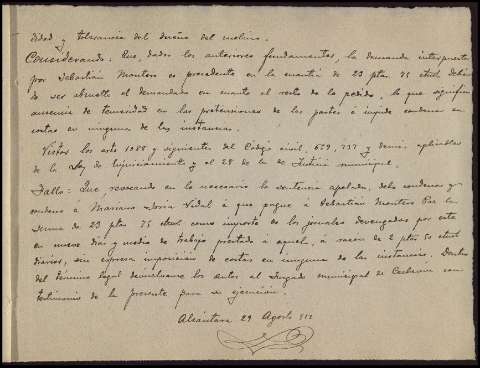 vidad y tolerancia del dueño del molino.
Considerando: Que, dados los anteriores fundamentos, la demanda interpuesta
por Sebastián Montero es procedente en la cuantía de 23 ptas 75 ctms debien
do ser absuelto el demandado en cuanto al resto de lo pedido, lo que significa
ausencia de temeridad en las pretensiones de las partes é impide condena en
costas en ninguna de las instancias.
Vistos los arts 1088 y siguientes del Código civil, 659, 737 y demás aplicables
de la Ley de Enjuiciamiento y el 28 de la de Justicia municipal.
Fallo = Que revocando en lo necesario la sentencia apelada, debo condenar y
condeno á Mariano Vidal á que pague á Sebastián Montero la
suma de 23 ptas 75 ctms como importe de los jornales devengados por este
en nueve días y medio de trabajo prestado á aquel, á razón de 2 ptas 50 ctms
diarios, sin expresa imposición de costas en ninguna de las instancias. Dentro
del término legal devuélvanse los autos al Juzgado municipal de con
testimonio de la presente para su ejecución.
Alcántara 29 Agosto 912